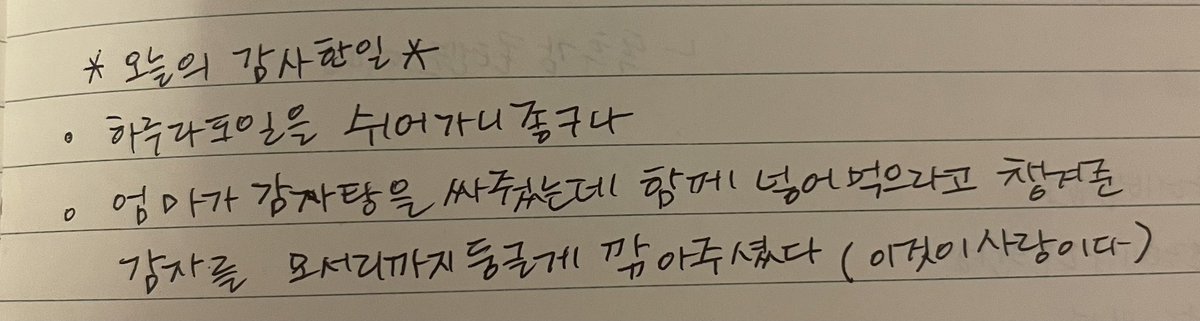 * 오늘의 감사한일 *
• 하루라도일을 쉬어가니좋구나
• 엄마가 감자탕을 싸줬는데 함께 넣어먹으라고 챙겨준
감자를 모서리까지 둥글게 깎아주셨다 (이것이사랑이다)